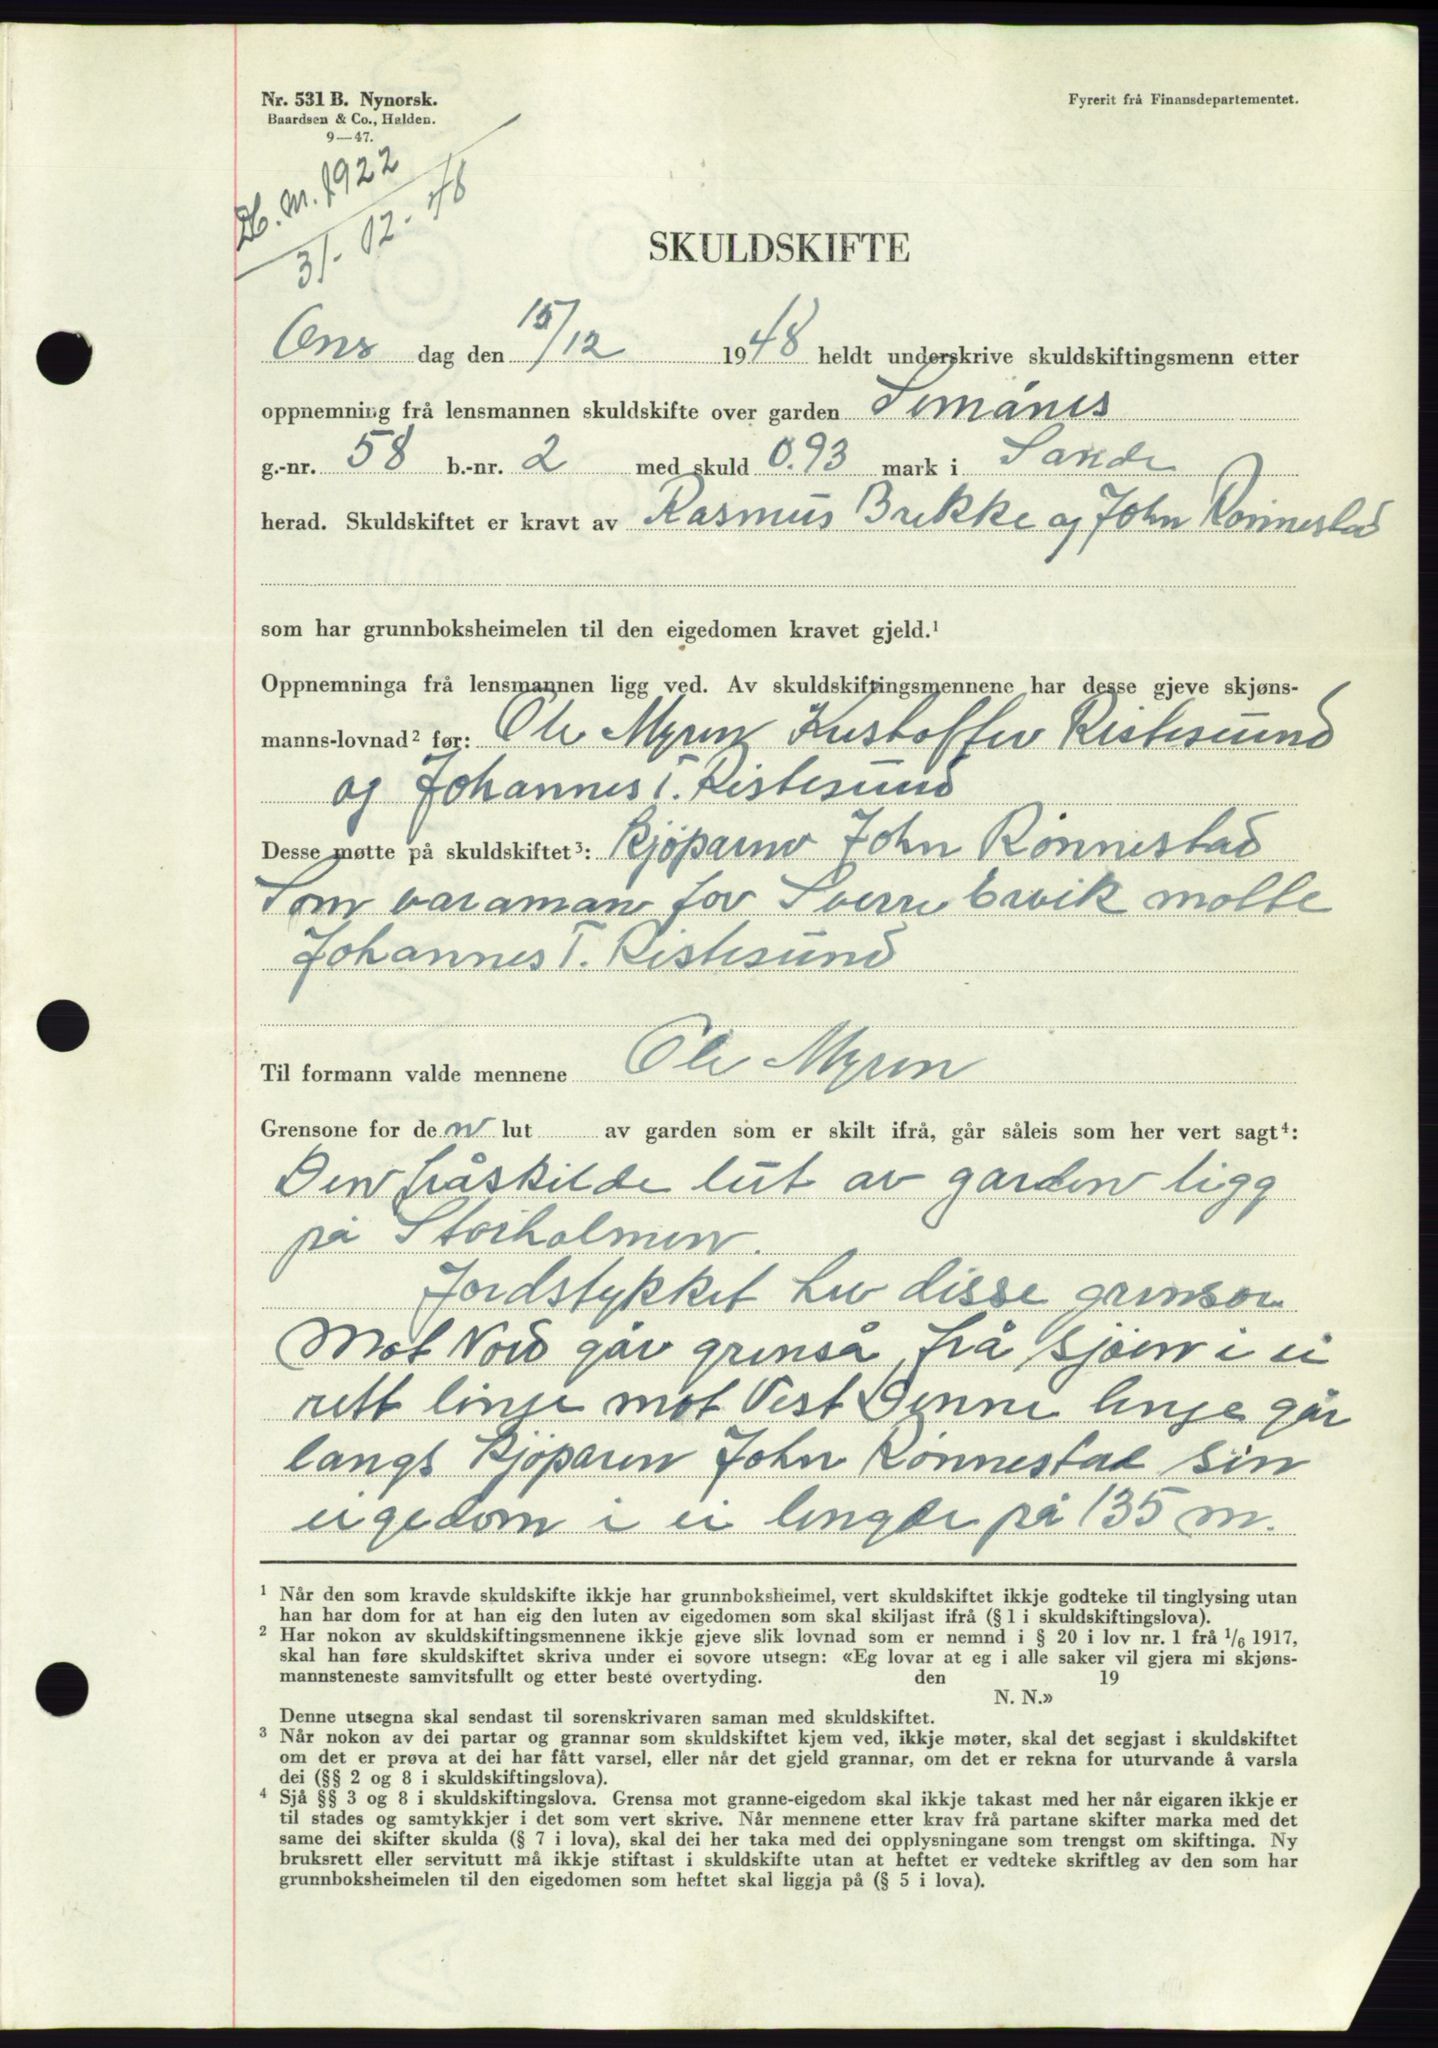 Nr. 531 B. Nynorsk.
Baardsen & Co., Halden.
9—47.
Fyrerit frå Finansdepartementet.
Db. nr. 1922
31-12-48
SKULDSKIFTE
Ons dag den 15/12 1948 heldt underskrive skuldskiftingsmenn etter
oppnemning frå lensmannen skuldskifte over garden Simånes
g.-nr. 58 b.-nr. 2 med skuld 0.93 mark i Sande
herad. Skuldskiftet er kravt av Rasmus Brekke og John Rönnestad
som har grunnboksheimelen til den eigedomen kravet gjeld.¹
Oppnemninga frå lensmannen ligg ved. Av skuldskiftingsmennene har desse gjeve skjøns-
manns-lovnad² før: Ole Myren Kristoffer Ristesund
og Johannes T. Ristesund
Desse møtte på skuldskiftet³: Kjöparne John Rönnestad
Som varaman for Sverre Ervik møtte
Johannes T. Ristesund
Til formann valde mennene Ole Myren
Grensone for den lut av garden som er skilt ifrå, går såleis som her vert sagt⁴:
Den fråskilde lut av garden ligg
på Storholmen.
Jordstykket hev disse grensor
Mot Nord går grenså frå sjöen i ei
rett linje mot Vest Denne linje går
langs Kjöparen John Rönnestad sin
eigedom i ei lengde på 135 m.
¹ Når den som kravde skuldskifte ikkje har grunnboksheimel, vert skuldskiftet ikkje godteke til tinglysing utan
han har dom for at han eig den luten av eigedomen som skal skiljast ifrå (§ 1 i skuldskiftingslova).
² Har nokon av skuldskiftingsmennene ikkje gjeve slik lovnad som er nemnd i § 20 i lov nr. 1 frå 1/6 1917,
skal han føre skuldskiftet skriva under ei sovore utsegn: «Eg lovar at eg i alle saker vil gjera mi skjøns-
mannsteneste samvitsfullt og etter beste overtyding. den 19
N. N.»
Denne utsegna skal sendast til sorenskrivaren saman med skuldskiftet.
³ Når nokon av dei partar og grannar som skuldskiftet kjem ved, ikkje møter, skal det segjast i skuldskiftet
om det er prøva at dei har fått varsel, eller når det gjeld grannar, om det er rekna for uturvande å varsla
dei (§§ 2 og 8 i skuldskiftingslova).
⁴ Sjå §§ 3 og 8 i skuldskiftingslova. Grensa mot granne-eigedom skal ikkje takast med her når eigaren ikkje er
til stades og samtykkjer i det som vert skrive. Når mennene etter krav frå partane skifter marka med det
same dei skifter skulda (§ 7 i lova), skal dei her taka med dei opplysningane som trengst om skiftinga. Ny
bruksrett eller servitutt må ikkje stiftast i skuldskifte utan at heftet er vedteke skriftleg av den som har
grunnboksheimelen til den eigedomen som heftet skal liggja på (§ 5 i lova).